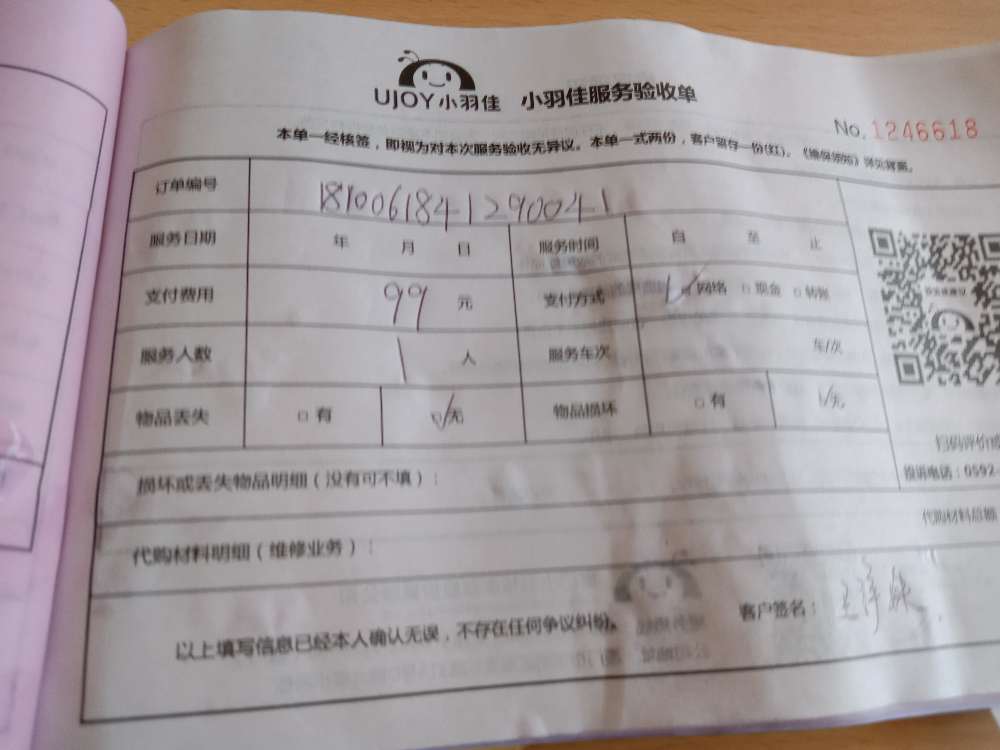 UJOY小羽佳 小羽佳服务验收单
No. 1246618
本单一经核签，即视为对本次服务验收无异议。本单一式两份，客户留存一份(红)。《维保须知》详见背面。
订单编号 181006184129004-1
服务日期 年 月 日 服务时间 自 至 止
支付费用 99 元 支付方式 网络 现金 转账
服务人数 1 人 服务车次 车/次
物品丢失 □有 无 物品损坏 □有 无
扫码评价或
损坏或丢失物品明细（没有可不填）：
投诉电话：0592-
代购材料总额
代购材料明细（维修业务）：
以上填写信息已经本人确认无误，不存在任何争议纠纷。
客户签名：